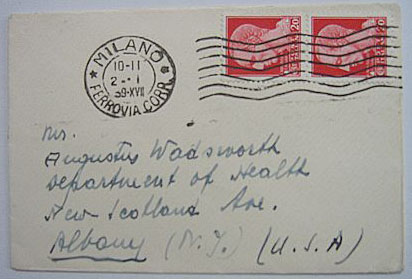 MILANO
10-11
2-1
39-XVII
FERROVIA CORR.
20
20
Mr.
Augustus Wadsworth
Department of Health
New-Scotland Ave.
Albany (N.Y.) (U.S.A)